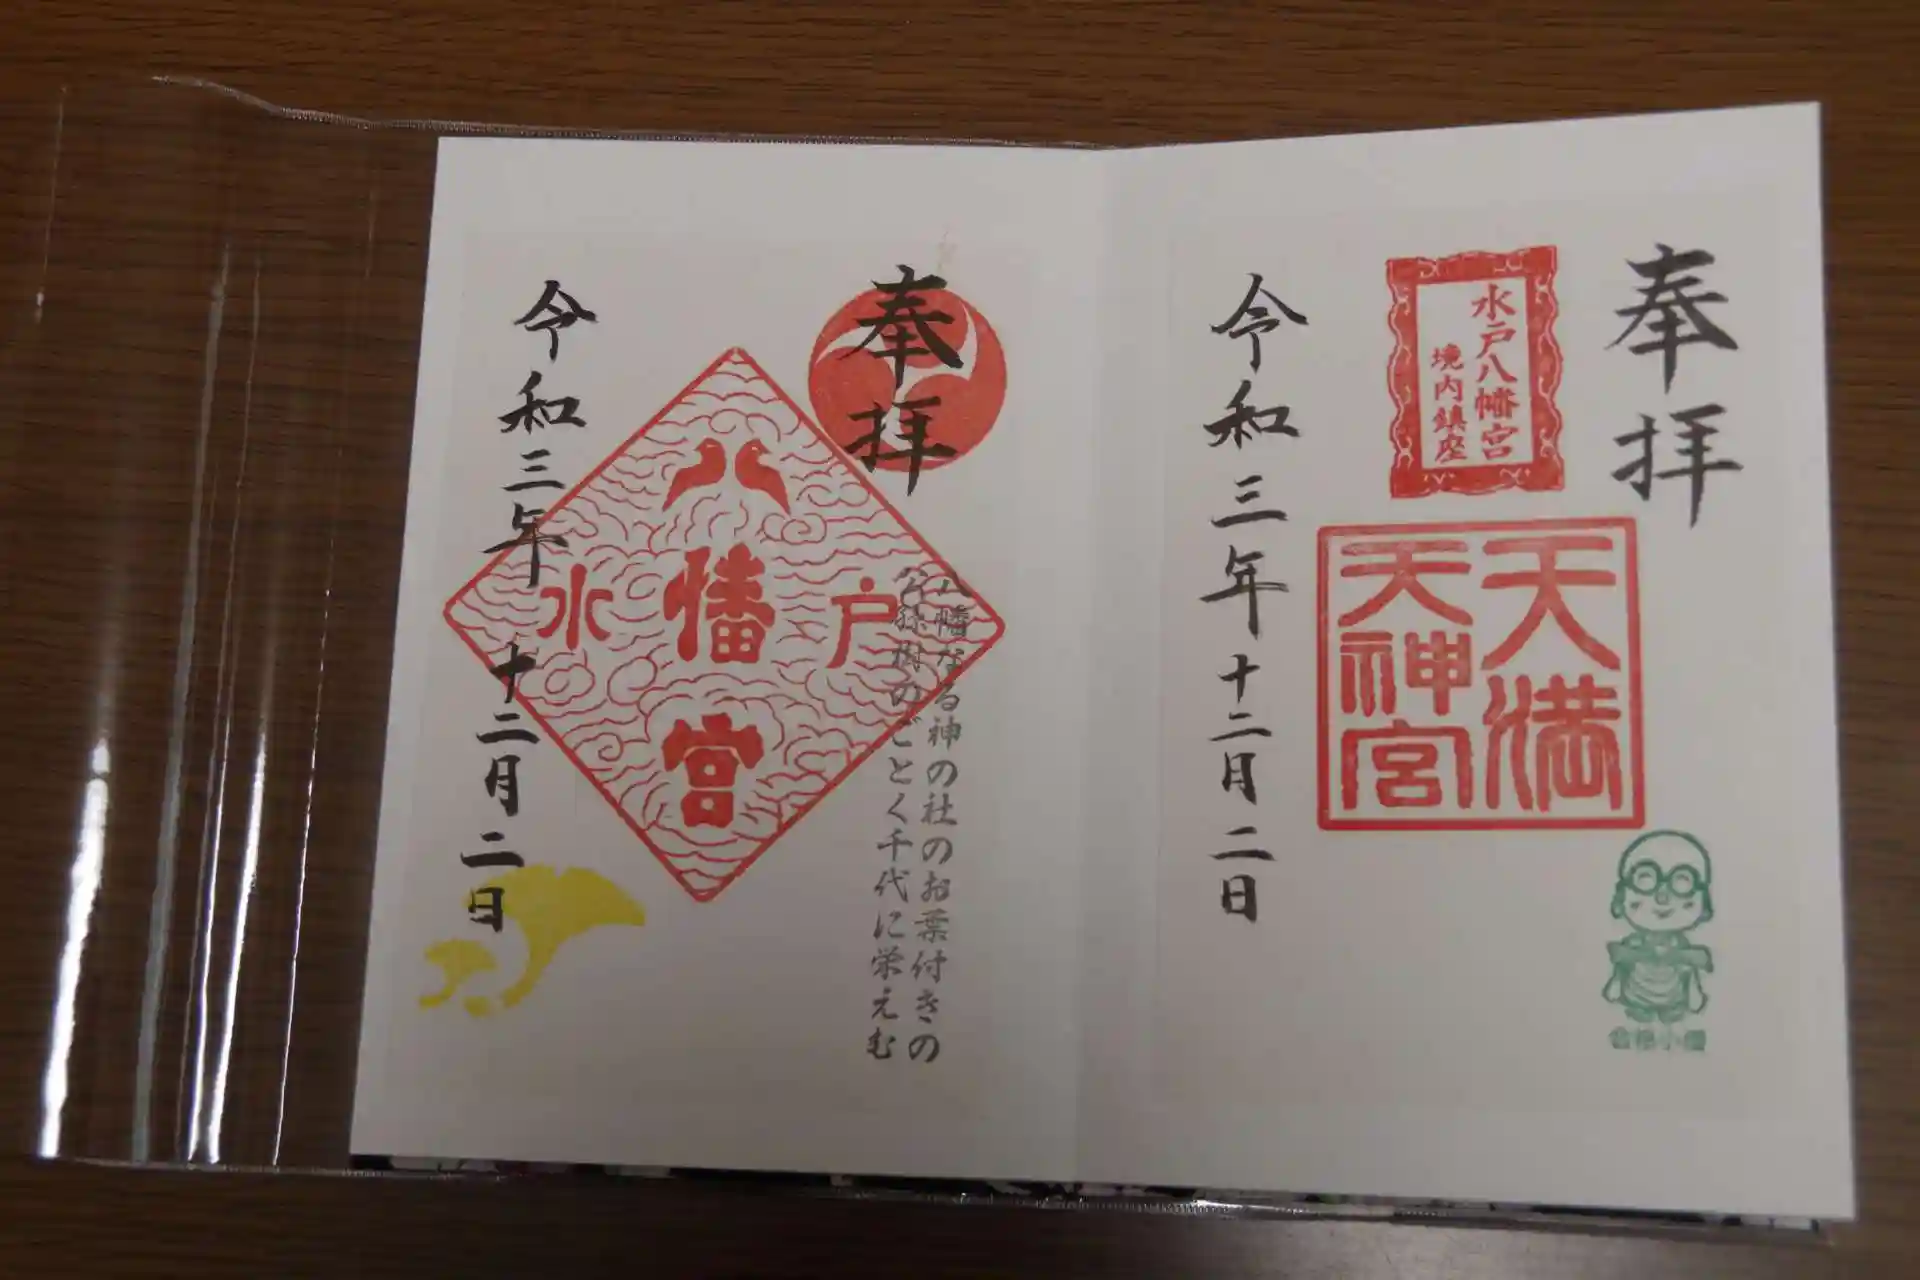 奉拝
水戸八幡宮
境内鎮座
天満
天神宮
合格小僧
令和三年十二月二日
奉拝
八幡なる神の社のお葉付きの
公孫樹のごとく千代に栄えむ
水戸
八幡宮
令和三年十二月二日